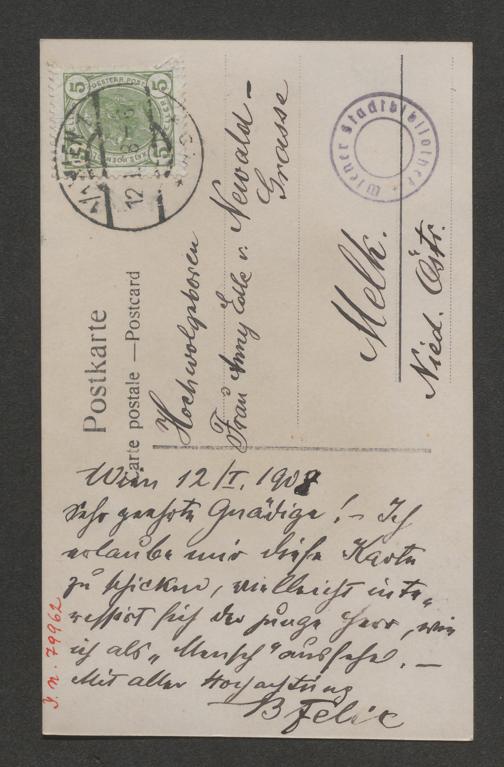 Postkarte
Carte postale — Postcard
5 5
5 5
12
Wiener Stadtbibliothek
Hochwolgeboren
Frau Anny Edle v. Newald-
Grasse
Melk.
Nied. Östr.
Wien 12/I. 1908
Sehr geehrte Gnädige! – Ich
erlaube mir diese Karte
zu schicken, vielleicht inte-
ressirt sich der junge Herr, wie
ich als „Mensch" aussehe. –
Mit aller Hochachtung
B Felix
I. N. 79962